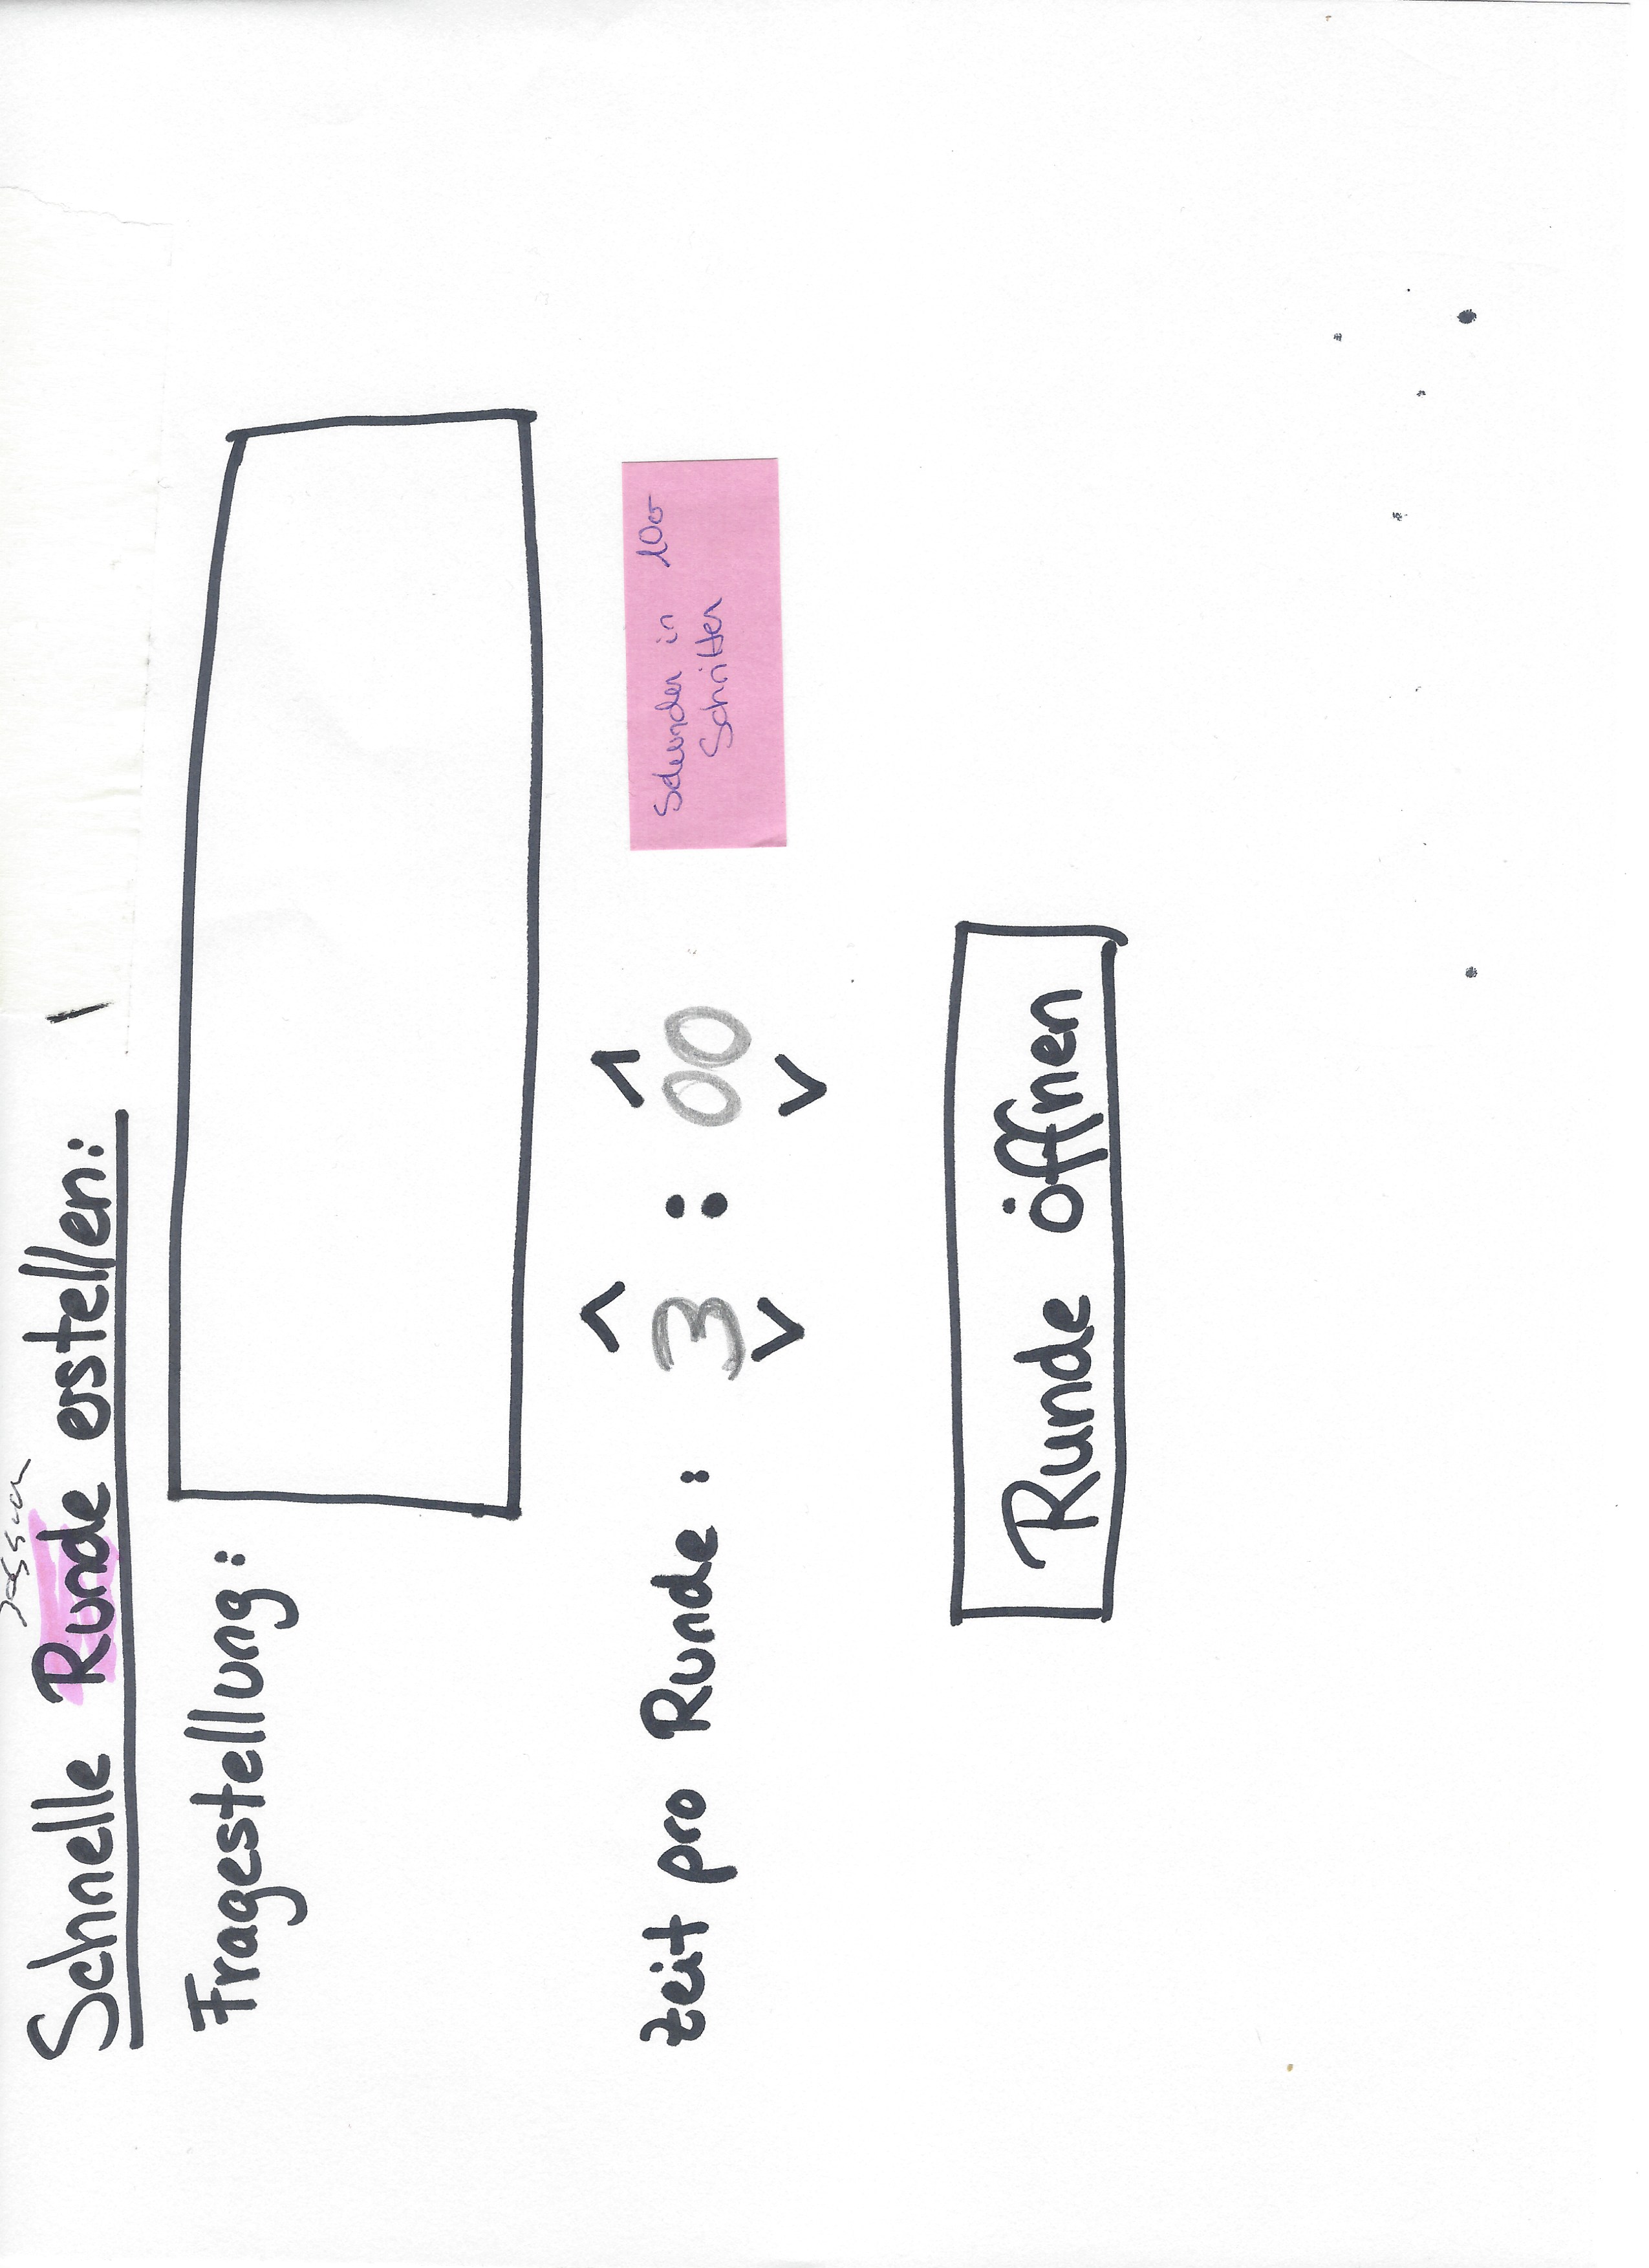 Session
Schnelle Runde erstellen:
Fragestellung:
Zeit pro Runde: 3 : 00
Sekunden in 10er
Schritten
Runde öffnen